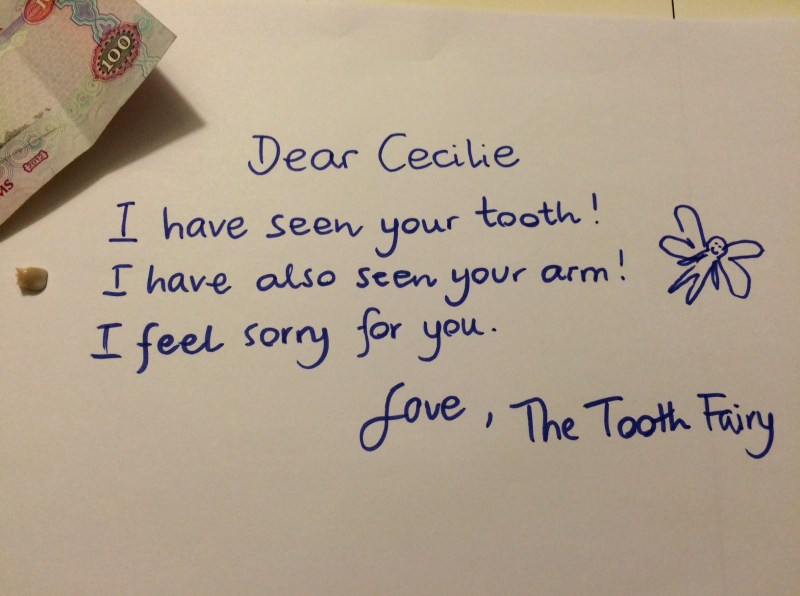 100
2012
Dear Cecilie
I have seen your tooth!
I have also seen your arm!
I feel sorry for you.
Love, The Tooth Fairy